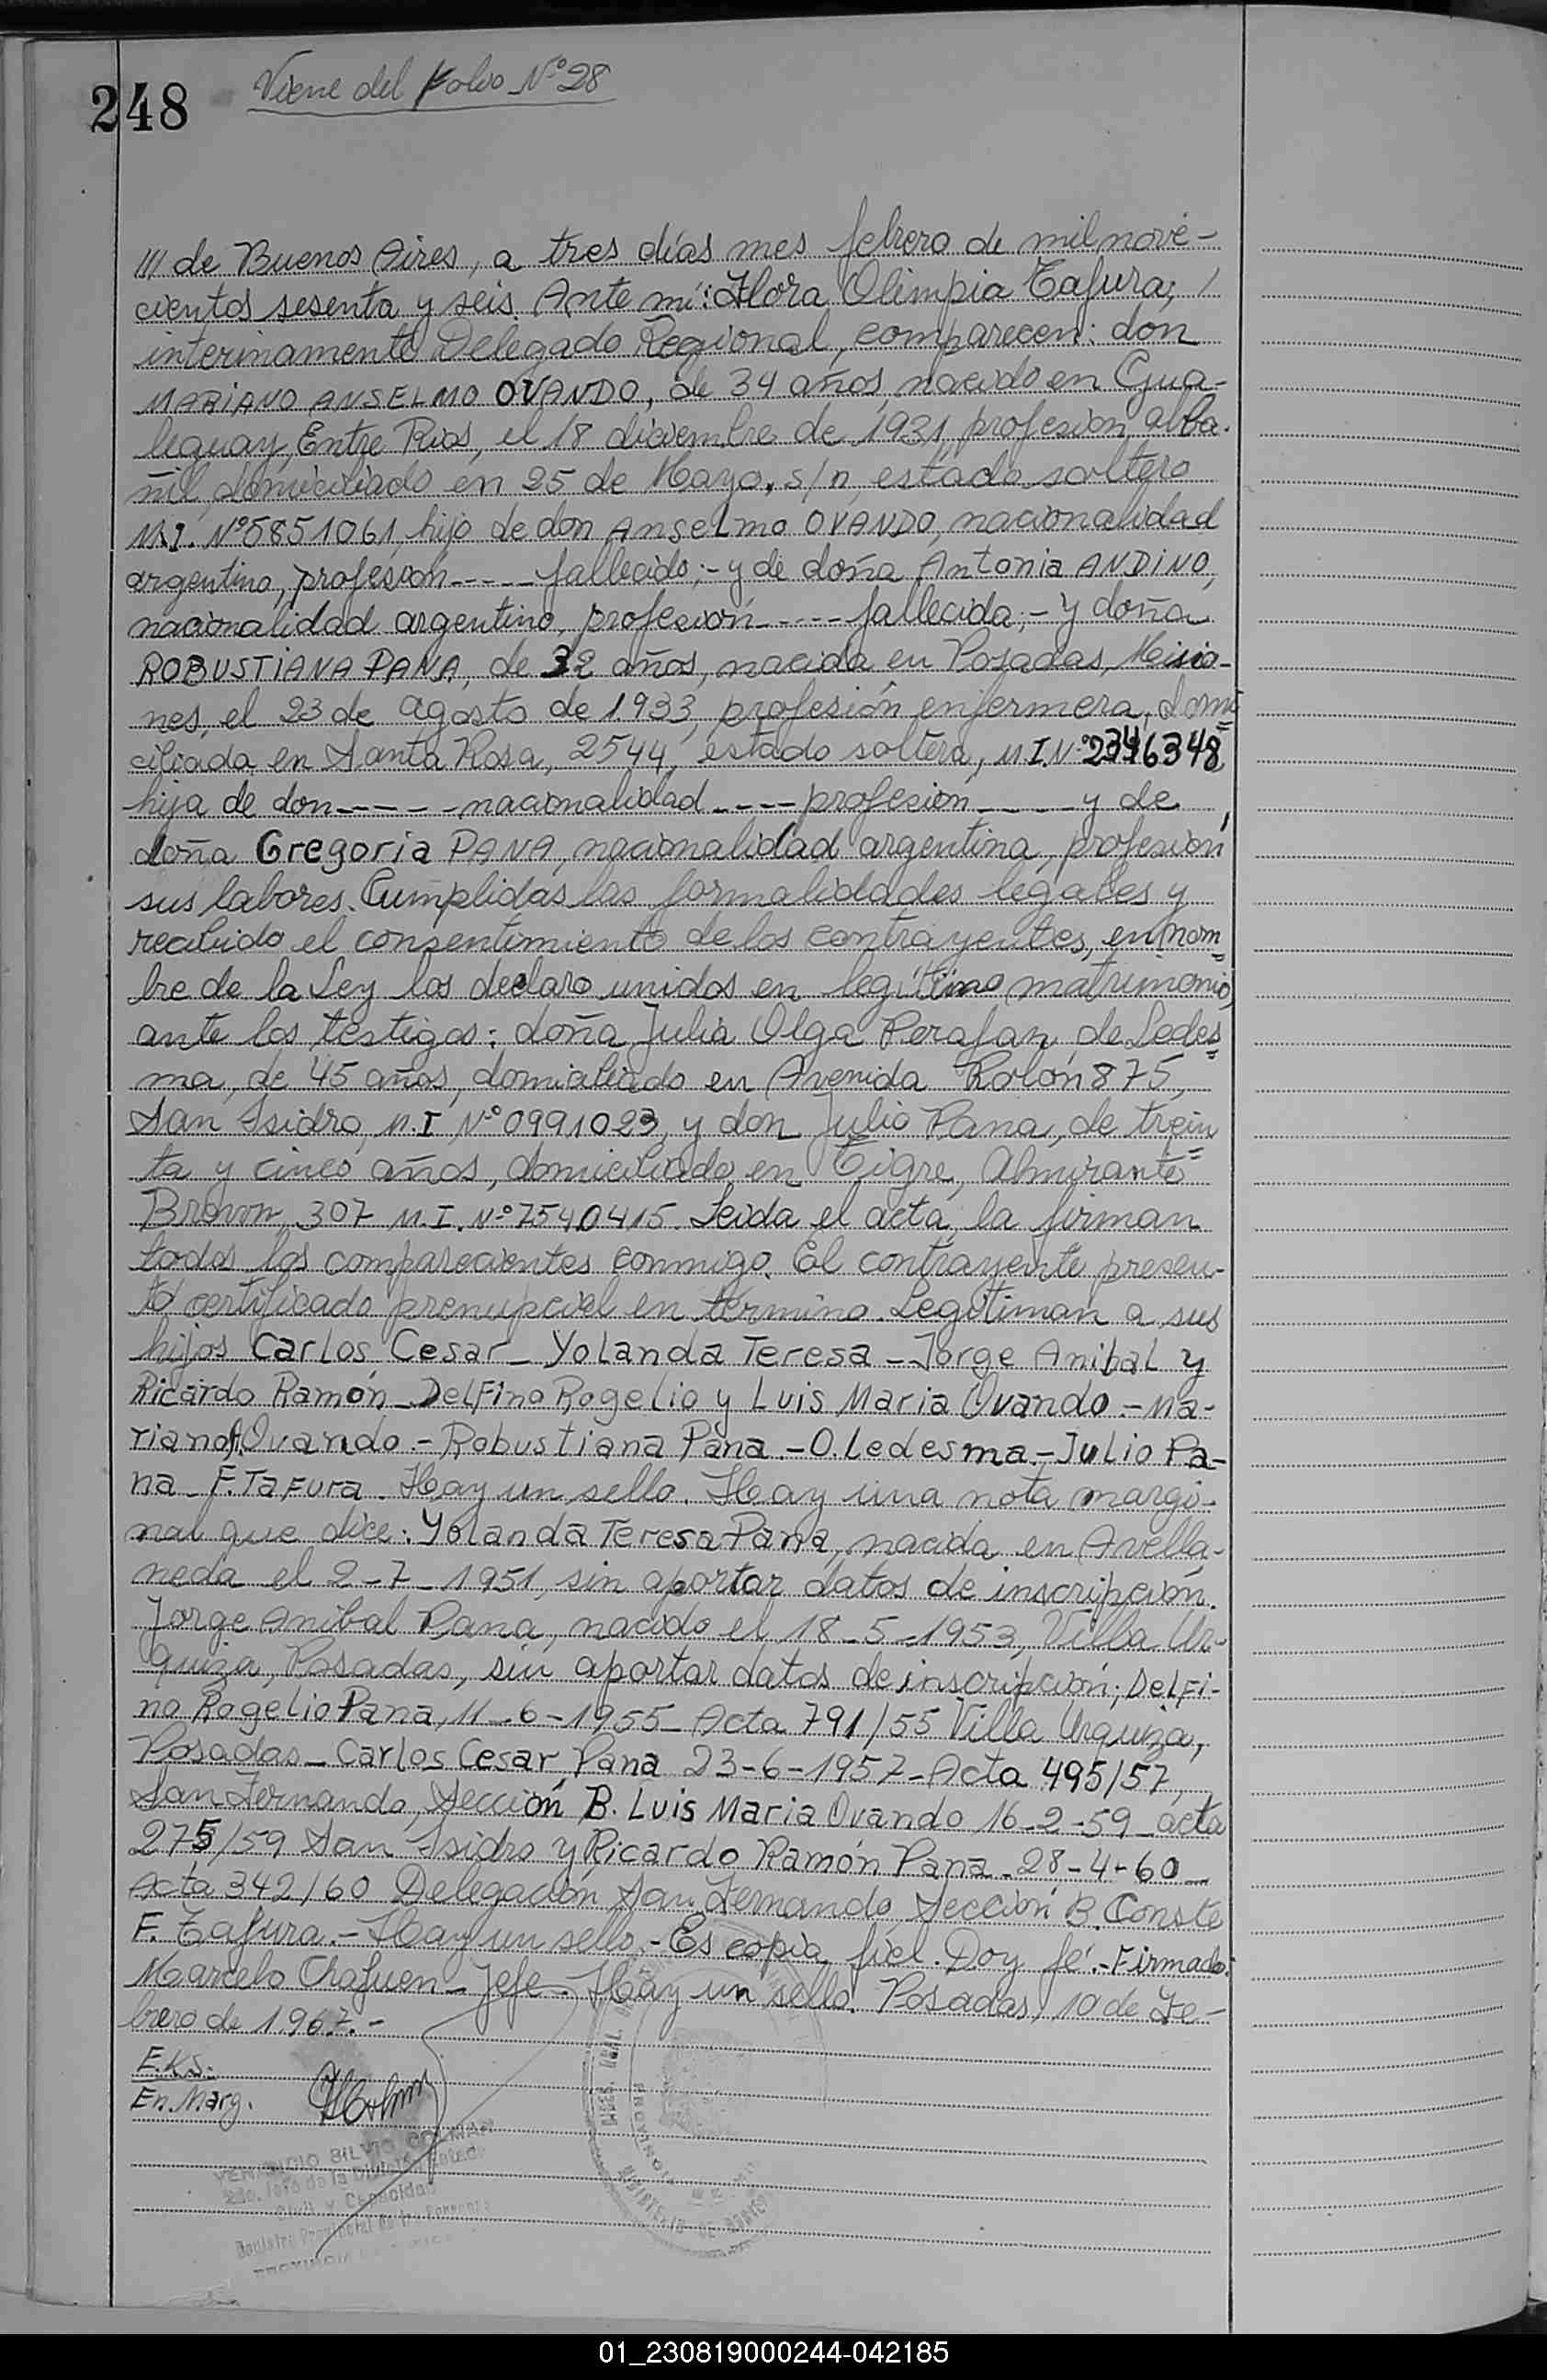 248
Viene del Folio Nº 28
/// de Buenos Aires, a tres días mes febrero de mil nove-
cientos sesenta y seis. Ante mí: Flora Olimpia Tafura; /
interinamente Delegado Regional, comparecen: don
MARIANO ANSELMO OVANDO, de 34 años, nacido en Gua-
leguay, Entre Rios, el 18 diciembre de 1931, profesion alba-
ñil, domiciliado en 25 de Mayo, s/n, estado soltero
M.I. Nº 5851061, hijo de don Anselmo OVANDO, nacionalidad
argentino, profesion ----- fallecido; - y de doña Antonia ANDINO,
nacionalidad argentino, profesión ----- fallecida; - Y doña
ROBUSTIANA PANA, de 32 años, nacida en Posadas, Misio-
nes, el 23 de agosto de 1.933, profesión enfermera, domi=
ciliada en Santa Rosa, 2544, estado soltera, M.I. Nº 2346348,
hija de don ----- nacionalidad ---- profesion ---- y de
doña Gregoria PANA, nacionalidad argentina, profesion
sus labores. Cumplidas las formalidades legales y
recibido el consentimiento de los contrayentes, en nom=
bre de la Ley los declaro unidos en legítimo matrimonio,
ante los testigos: doña Julia Olga Perafan de Ledes=
ma, de 45 años, domiciliado en Avenida Rolón 875,
San Isidro, M.I Nº 0991023, y don Julio Pana, de trein
ta y cinco años, domiciliado en Tigre, Almirante
Brown, 307 M.I. Nº 7540415. Leida el acta, la firman
todos los comparecientes conmigo. El contrayente presen-
tó certificado prenupcial en término. Legitiman a sus
hijos Carlos Cesar - Yolanda Teresa - Jorge Anibal y
Ricardo Ramón - Delfino Rogelio y Luis Maria Ovando. - Ma-
riano A. Ovando. - Robustiana Pana. - O. Ledesma. - Julio Pa-
na - F. Tafura. Hay un sello. Hay una nota margi-
nal que dice: Yolanda Teresa Pana, nacida en Avella-
neda el 2-7-1951, sin aportar datos de inscripción.
Jorge Anibal Pana, nacido el 18-5-1953, Villa Ur-
quiza, Posadas, sin aportar datos de inscripción; Delfi-
no Rogelio Pana, 11-6-1955 - Acta 791/55 Villa Urquiza,
Posadas - Carlos Cesar Pana 23-6-1957 - Acta 495/57,
San Fernando, Sección B. Luis Maria Ovando 16-2-59 - acta
275/59 San Isidro y Ricardo Ramón Pana - 28-4-60 -
Acta 342/60 Delegación San Fernando Sección B. Conste
F. Tafura. - Hay un sello. - Es copia fiel. Doy fé. - Firmado:
Marcelo Chafuen - Jefe. Hay un sello. Posadas, 10 de Fe-
brero de 1.967. -
E.K.S.
En. Marg.
VENANCIO SILVIO COLMAN
2do. Jefe de la División Estado
Civil y Capacidad
01_230819000244-042185